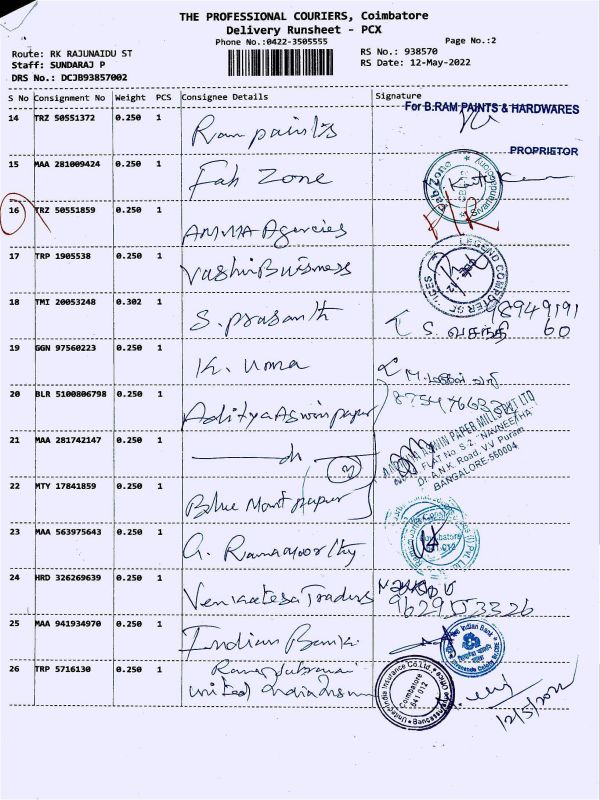 THE PROFESSIONAL COURIERS, Coimbatore
Delivery Runsheet - PCX
Phone No.:0422-3505555
Page No.:2
Route: RK RAJUNAIDU ST
RS No.: 938570
Staff: SUNDARAJ P
RS Date: 12-May-2022
DRS No.: DCJB93857002
S No Consignment No Weight PCS Consignee Details Signature
For B.RAM PAINTS & HARDWARES
14 TRZ 50551372 0.250 1 Ram paints
PROPRIETOR
15 MAA 281009424 0.250 1 Fab Zone
16 TRZ 50551859 0.250 1 AMMA Agencies
17 TRP 1905538 0.250 1
LEGEND COMPUTER SERVICES
18 TMI 20053248 0.302 1 S. prasanth
98949191
60
S. வசந்தி
19 GGN 97560223 0.250 1 K. Uma
20 BLR 5100806798 0.250 1 Aditya Aswin paper
ASWIN PAPER MILLS PVT LTD
FLAT No. S-2, NAVNEETHA
Dr. A.N.K. Road, V.V Puram
BANGALORE-560004
21 MAA 281742147 0.250 1
22 MTY 17841859 0.250 1 Blue Mont paper
3
23 MAA 563975643 0.250 1 G. Ramamoorthy
Coimbatore
641 012
24 HRD 326269639 0.250 1 Venkatesa Traders
25 MAA 941934970 0.250 1 Indian Bank
Indian Bank
26 TRP 5716130 0.250 1
United India Insu
United India Insurance Co.Ltd.
Coimbatore
641 012
12/5/2022